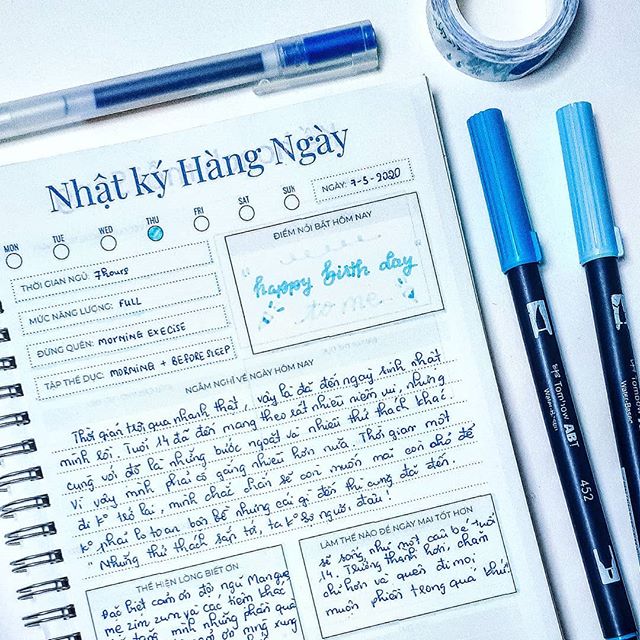 Nhật ký Hàng Ngày
NGÀY: 7-5-2020
MON TUE WED THU FRI SAT SUN
THỜI GIAN NGỦ: 7hours
MỨC NĂNG LƯỢNG: FULL
ĐỪNG QUÊN: MORNING EXECISE
TẬP THỂ DỤC: MORNING + BEFORE SLEEP
ĐIỂM NỔI BẬT HÔM NAY
happy birth day
to me
NGẪM NGHĨ VỀ NGÀY HÔM NAY
Thời gian trôi qua nhanh thật, vậy là đã đến ngày sinh nhật
mình rồi. Tuổi 14 đã đến mang theo rất nhiều niềm vui, nhưng
cùng với đó là những bước ngoặt và nhiều thử thách khác.
Vì vậy mình phải cố gắng nhiều hơn nữa. Thời gian một
đi ko trở lại, mình chắc chắn sẽ còn muốn mai còn chỗ để
ko phải lo toan bộn bề nhưng cái gì đến thì cũng đã đến.
"Những thử thách sắp tới, ta ko sợ ngươi đâu!
THỂ HIỆN LÒNG BIẾT ƠN
Đặc biệt cảm ơn đội ngũ Mangue
mẹ zim zum và các tiệm khác
mình những phần quà
LÀM THẾ NÀO ĐỂ NGÀY MAI TỐT HƠN
sẽ sống như một cậu bé tuổi
14. Trưởng thành hơn, chăm
chỉ hơn và quên đi mọi
muộn phiền trong quá khứ
Tombow ABT
452
Tombow